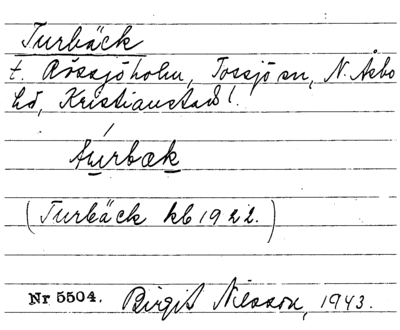 Turbäck
t. Rössjöholm, Tossjö sn, N. Åsbo
hd, Kristianstads l.
túrbæk
(Turbäck kb 1922.)
Nr 5504. Birgit Nilsson, 1943.